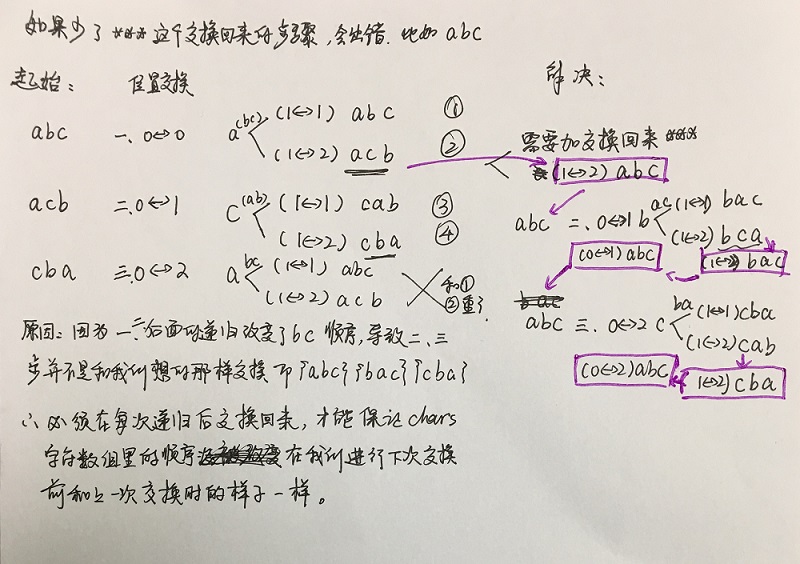 如果少了 *** 这个交换回来的步骤,会出错. 比如 abc
起始: 位置交换
abc 一、0↔0 a(bc) (1↔1) abc ①
(1↔2) acb ②
acb 二、0↔1 c(ab) (1↔1) cab ③
(1↔2) cba ④
cba 三、0↔2 a bc (1↔1) abc
(1↔2) acb
和①
②重了.
原因: 因为一、二后面的递归改变了bc 顺序,导致二、三
步并不是和我们想的那样交换 即{abc}{bac}{cba}
∴ 必须在每次递归后交换回来,才能保证 chars
字符数组里的顺序 在我们进行下次交换
前和上一次交换时的样子一样。
解决:
需要加交换回来 ***
(1↔2) abc
abc 二、0↔1 b ac (1↔1) bac
(1↔2) bca
(1↔2) bac
(0↔1) abc
abc 三、0↔2 c ba (1↔1) cba
(1↔2) cab
(1↔2) cba
(0↔2) abc